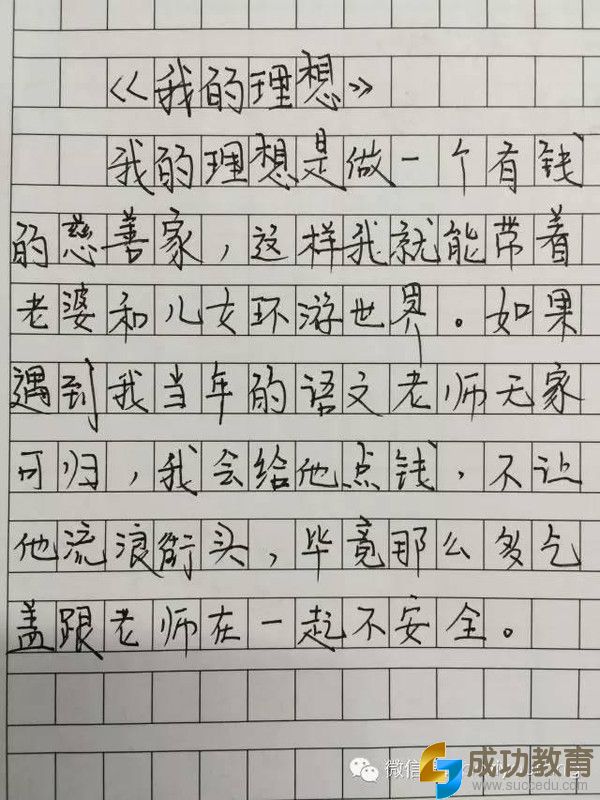 《我的理想》
我的理想是做一个有钱
的慈善家，这样我就能带着
老婆和儿女环游世界。如果
遇到我当年的语文老师无家
可归，我会给他点钱，不让
他流浪街头，毕竟那么多乞
盖跟老师在一起不安全。
微信
成功教育
www.succedu.com